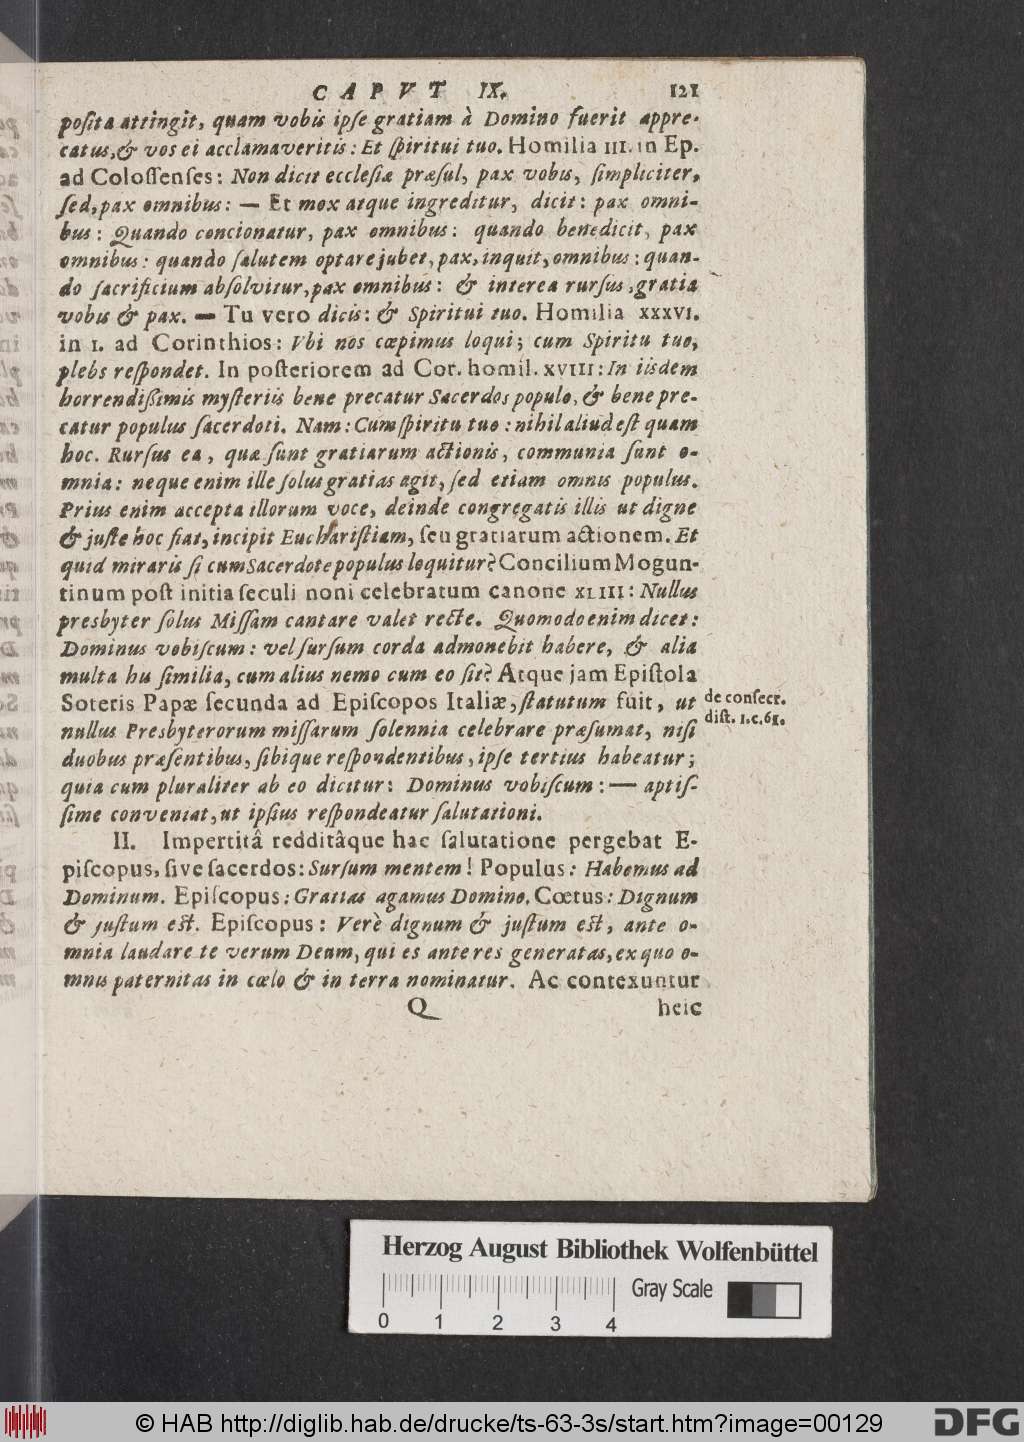 CAPVT IX. 121
posita attingit, quam vobis ipse gratiam à Domino fuerit appre-
catus, & vos ei acclamaveritis: Et spiritui tuo. Homilia III. in Ep.
ad Colossenses: Non dicit ecclesiæ præsul, pax vobis, simpliciter,
sed, pax omnibus: — Et mox atque ingreditur, dicit: pax omni-
bus: Quando concionatur, pax omnibus: quando benedicit, pax
omnibus: quando salutem optare jubet, pax, inquit, omnibus: quan-
do sacrificium absolvitur, pax omnibus: & interea rursus, gratia
vobis & pax. — Tu vero dicis: & Spiritui tuo. Homilia XXXVI.
in I. ad Corinthios: Vbi nos cœpimus loqui; cum Spiritu tuo,
plebs respondet. In posteriorem ad Cor. homil. XVIII: In iisdem
horrendißimis mysteriis bene precatur Sacerdos populo, & bene pre-
catur populus sacerdoti. Nam: Cum spiritu tuo: nihil aliud est quam
hoc. Rursus ea, quæ sunt gratiarum actionis, communia sunt o-
mnia: neque enim ille solus gratias agit, sed etiam omnis populus.
Prius enim accepta illorum voce, deinde congregatis illis ut digne
& juste hoc fiat, incipit Eucharistiam, seu gratiarum actionem. Et
quid miraris si cum Sacerdote populus loquitur? Concilium Mogun-
tinum post initia seculi noni celebratum canone XLIII: Nullus
presbyter solus Missam cantare valet recte. Quomodo enim dicet:
Dominus vobiscum: vel sursum corda admonebit habere, & alia
multa his similia, cum alius nemo cum eo sit? Atque jam Epistola
Soteris Papæ secunda ad Episcopos Italiæ, statutum fuit, ut
de consecr.
dist. I. c. 61.
nullus Presbyterorum missarum solennia celebrare præsumat, nisi
duobus præsentibus, sibique respondentibus, ipse tertius habeatur;
quia cum pluraliter ab eo dicitur: Dominus vobiscum: — aptis-
sime conveniat, ut ipsius respondeatur salutationi.
II. Impertitâ redditâque hac salutatione pergebat E-
piscopus, sive sacerdos: Sursum mentem! Populus: Habemus ad
Dominum. Episcopus: Gratias agamus Domino. Cœtus: Dignum
& justum est. Episcopus: Verè dignum & justum est, ante o-
mnia laudare te verum Deum, qui es ante res generatas, ex quo o-
mnis paternitas in cœlo & in terra nominatur. Ac contexuntur
Q heic
Herzog August Bibliothek Wolfenbüttel
Gray Scale
0 1 2 3 4
© HAB http://diglib.hab.de/drucke/ts-63-3s/start.htm?image=00129
DFG